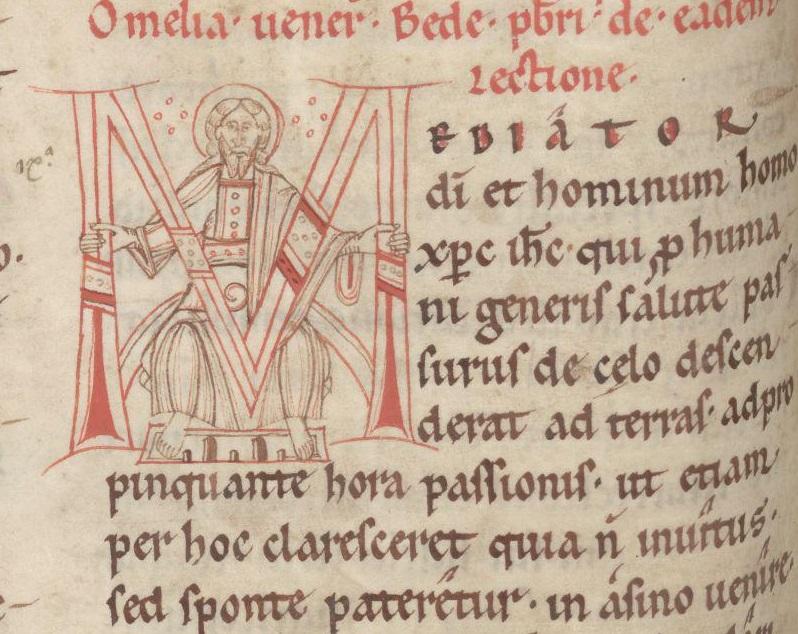 Omelia· uener· Bede· pb̄ri· de· eadem
lectione·
M EDIATOR
dī et hominum homo
xp̄c ih̄c· qui ꝓ huma
ni generis salute pas
surus de celo descen
derat ad terras· adpro
pinquante hora passionis· ut etiam
per hoc claresceret quia n̄ inuitus·
sed sponte pateretur· in asino uenire·